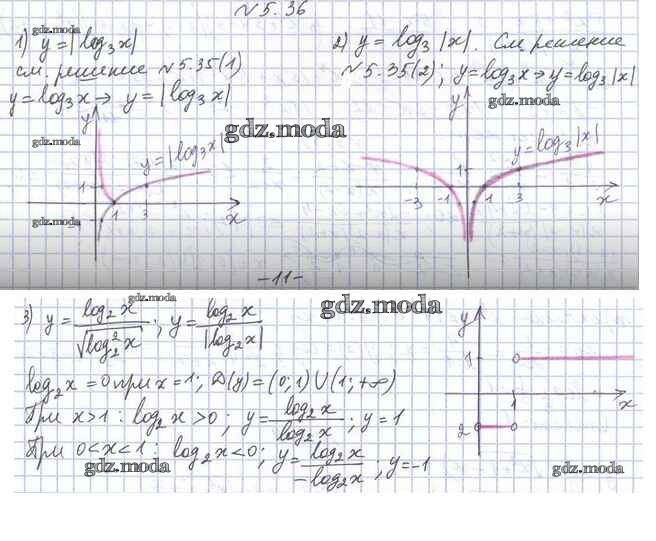 №5.36
1) y = |log₃x|
см. решение №5.35(1)
y = log₃x → y = |log₃x|
2) y = log₃|x|. См. решение
№5.35(2); y = log₃x → y = log₃|x|
gdz.moda
gdz.moda
gdz.moda
gdz.moda
gdz.moda
y
y = |log₃x|
1
1 3 x
y
y = log₃|x|
1
-3 -1 1 3 x
-11-
gdz.moda
gdz.moda
3) y = log₂x / √(log₂²x) ; y = log₂x / |log₂x|
log₂x = 0 при x = 1; D(y) = (0; 1) ∪ (1; +∞)
При x > 1 : log₂x > 0; y = log₂x / log₂x ; y = 1
При 0 < x < 1 : log₂x < 0; y = log₂x / -log₂x ; y = -1
y
1
1 x
2
gdz.moda
gdz.moda